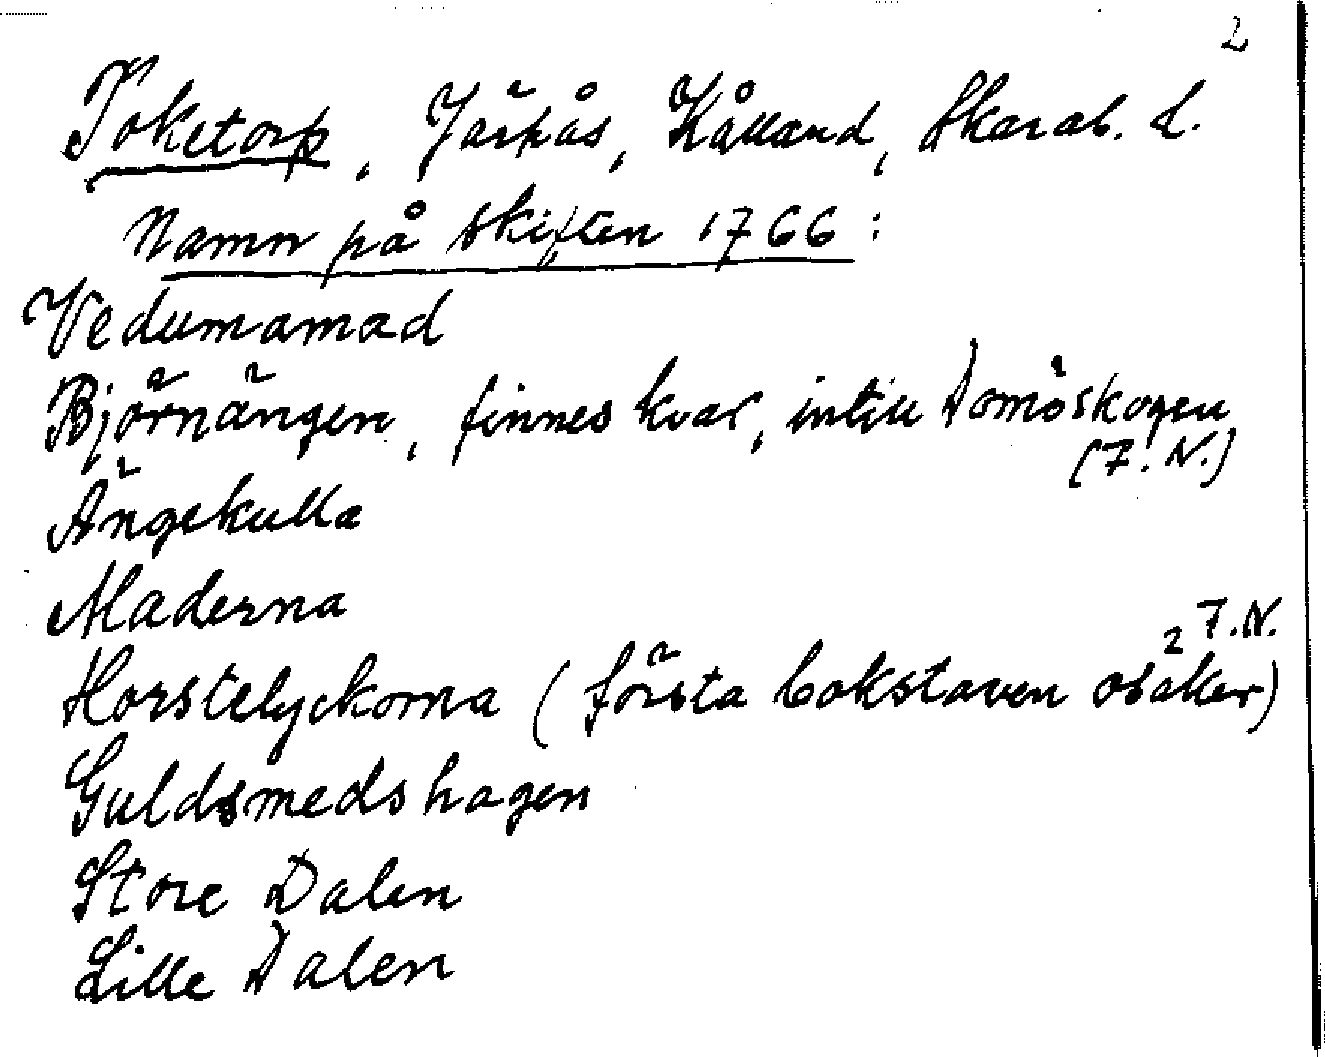 2
Toketorp, Järpås, Kålland, Skarab. l.
Namn på skiften 1766:
Vedumamad
Björnängen, finnes kvar, intill Domöskogen
(F. N.)
Ängekulla
Maderna
F. N.
Horstelyckorna (första bokstaven osäker)
Guldsmedshagen
Store Dalen
Lille Dalen